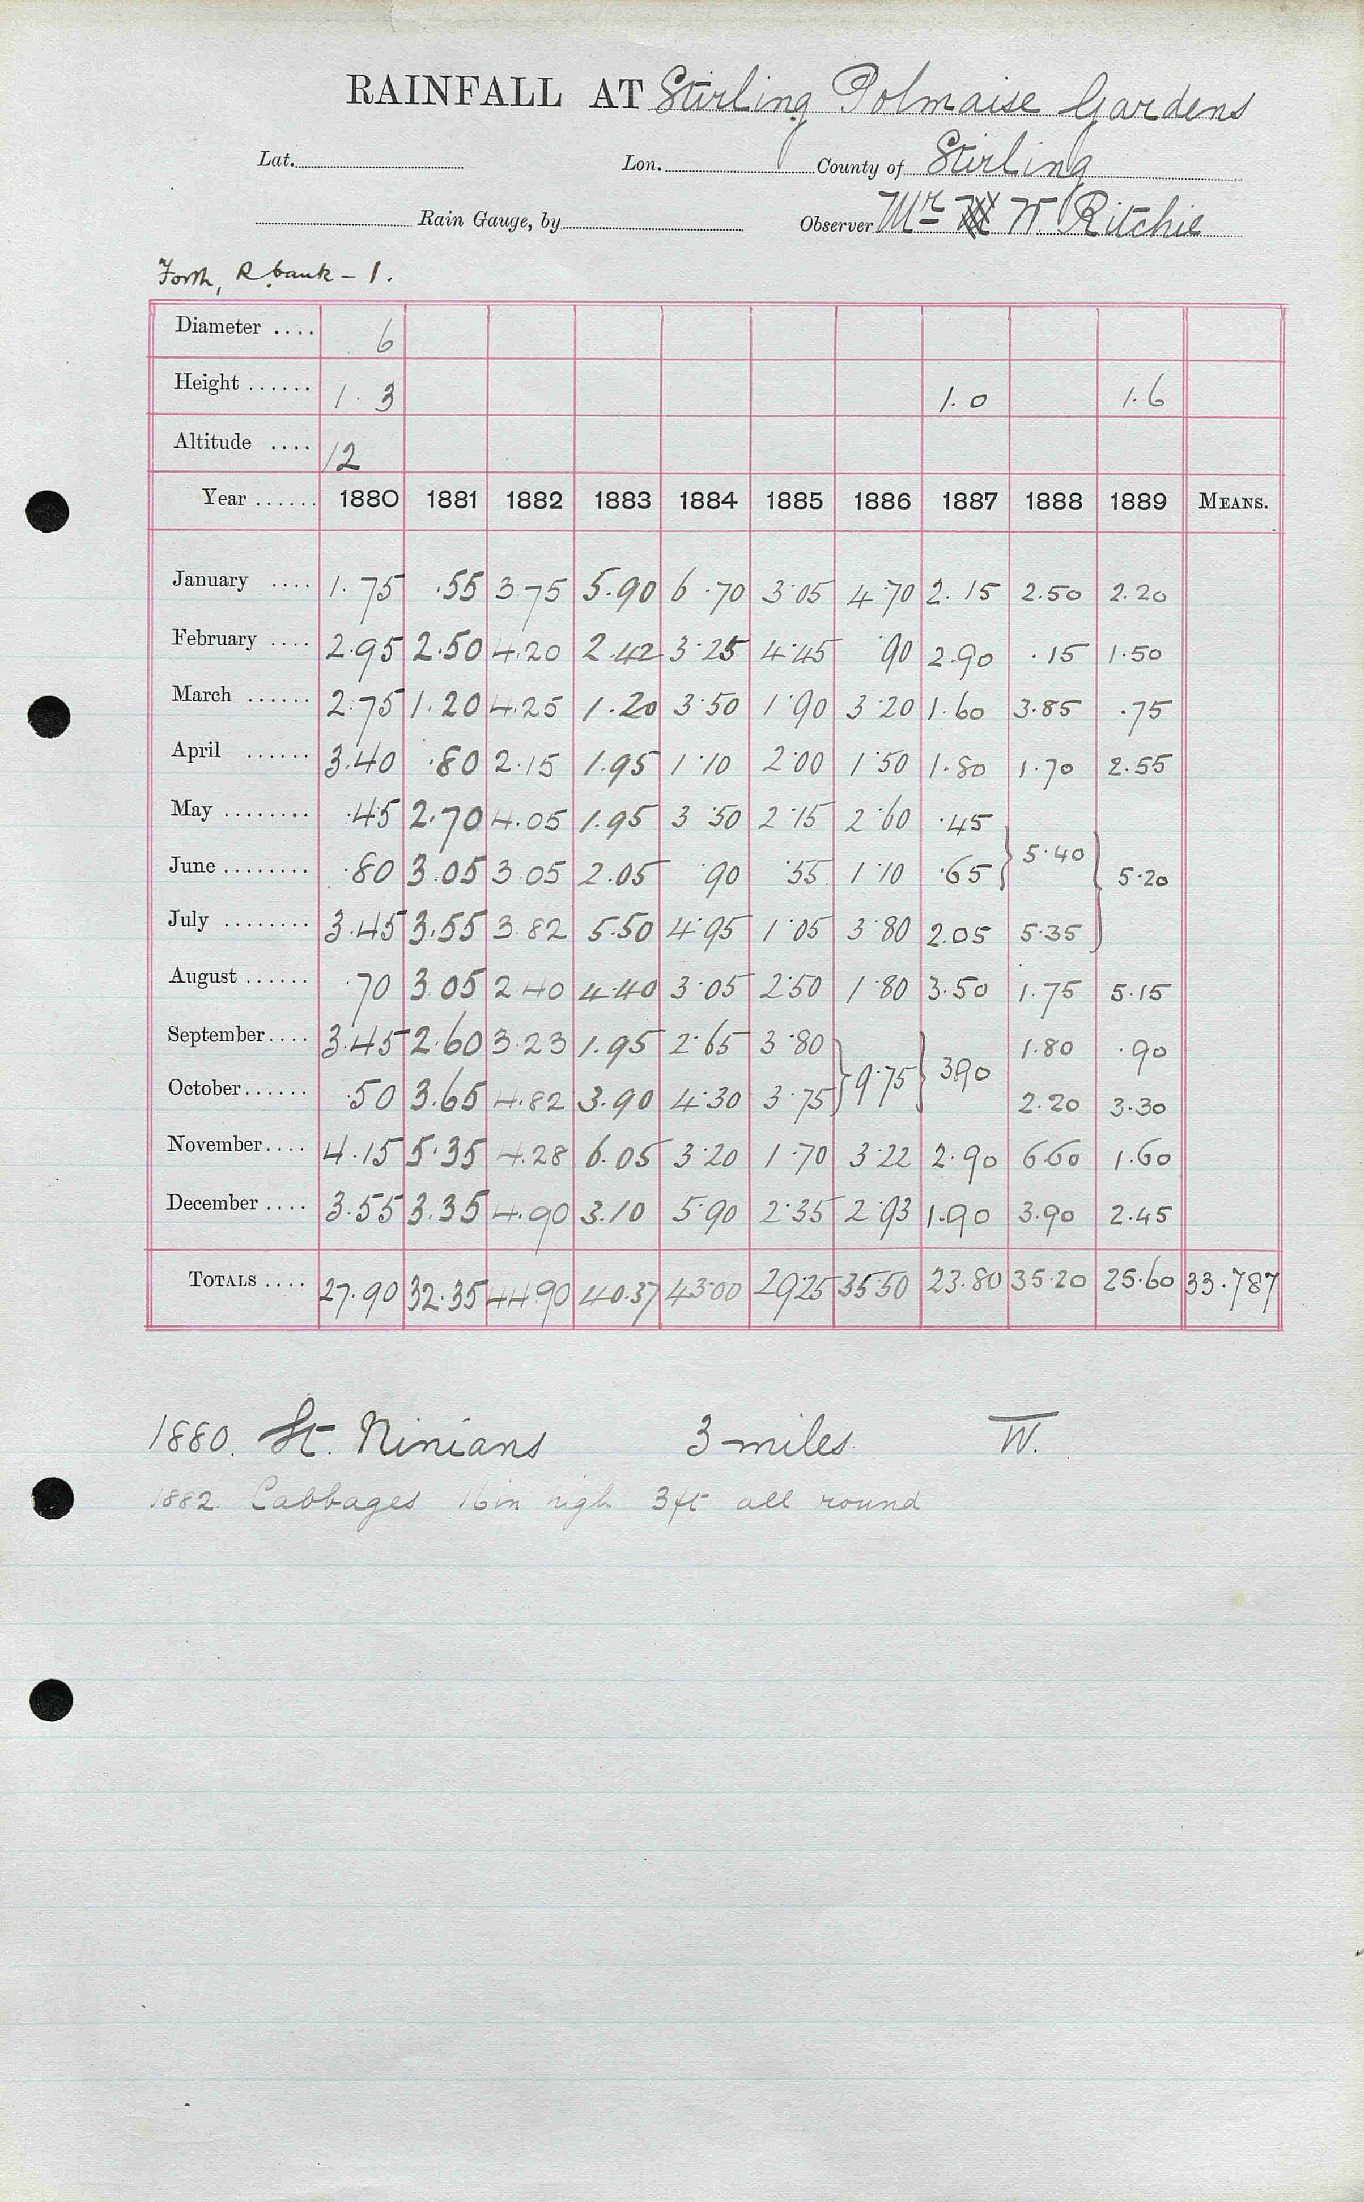 RAINFALL AT Stirling Polmaise Gardens
Lat. Lon. County of Stirling
Rain Gauge, by Observer Mr W. Ritchie
Forth, R bank - 1.
Diameter .... 6
Height ...... 1. 3 1.0 1.6
Altitude .... 12
Year ...... 1880 1881 1882 1883 1884 1885 1886 1887 1888 1889 MEANS.
January .... 1.75 .55 3.75 5.90 6.70 3.05 4.70 2.15 2.50 2.20
February .... 2.95 2.50 4.20 2.42 3.25 4.45 .90 2.90 .15 1.50
March ...... 2.75 1.20 4.25 1.20 3.50 1.90 3.20 1.60 3.85 .75
April ...... 3.40 .80 2.15 1.95 1.10 2.00 1.50 1.80 1.70 2.55
May ........ .45 2.70 4.05 1.95 3.50 2.15 2.60 .45
June ........ .80 3.05 3.05 2.05 .90 .55 1.10 .65 } 5.40 } 5.20
July ........ 3.45 3.55 3.82 5.50 4.95 1.05 3.80 2.05 5.35
August ...... .70 3.05 2.40 4.40 3.05 2.50 1.80 3.50 1.75 5.15
September.... 3.45 2.60 3.23 1.95 2.65 3.80 } 9.75 } 3.90 1.80 .90
October...... .50 3.65 4.82 3.90 4.30 3.75 2.20 3.30
November.... 4.15 5.35 4.28 6.05 3.20 1.70 3.22 2.90 6.60 1.60
December .... 3.55 3.35 4.90 3.10 5.90 2.35 2.93 1.90 3.90 2.45
TOTALS .... 27.90 32.35 44.90 40.37 43.00 29.25 35.50 23.80 35.20 25.60 33.787
1880. St. Ninians 3 miles W.
1882. Cabbages 16in high 3ft all round